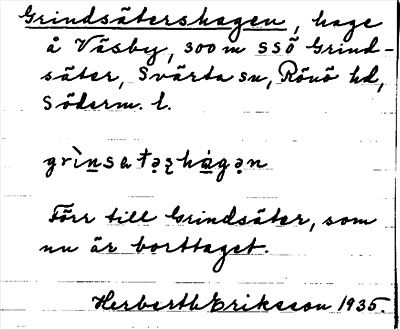 Grindsätershagen, hage
å Väsby, 500 m SSÖ Grind-
säter, Svärta sn, Rönö hd,
Söderm. l.
grìn̲sa tə̣ʂhá̲gən
Förr till Grindsäter, som
nu är borttaget.
Herberth Eriksson 1935.